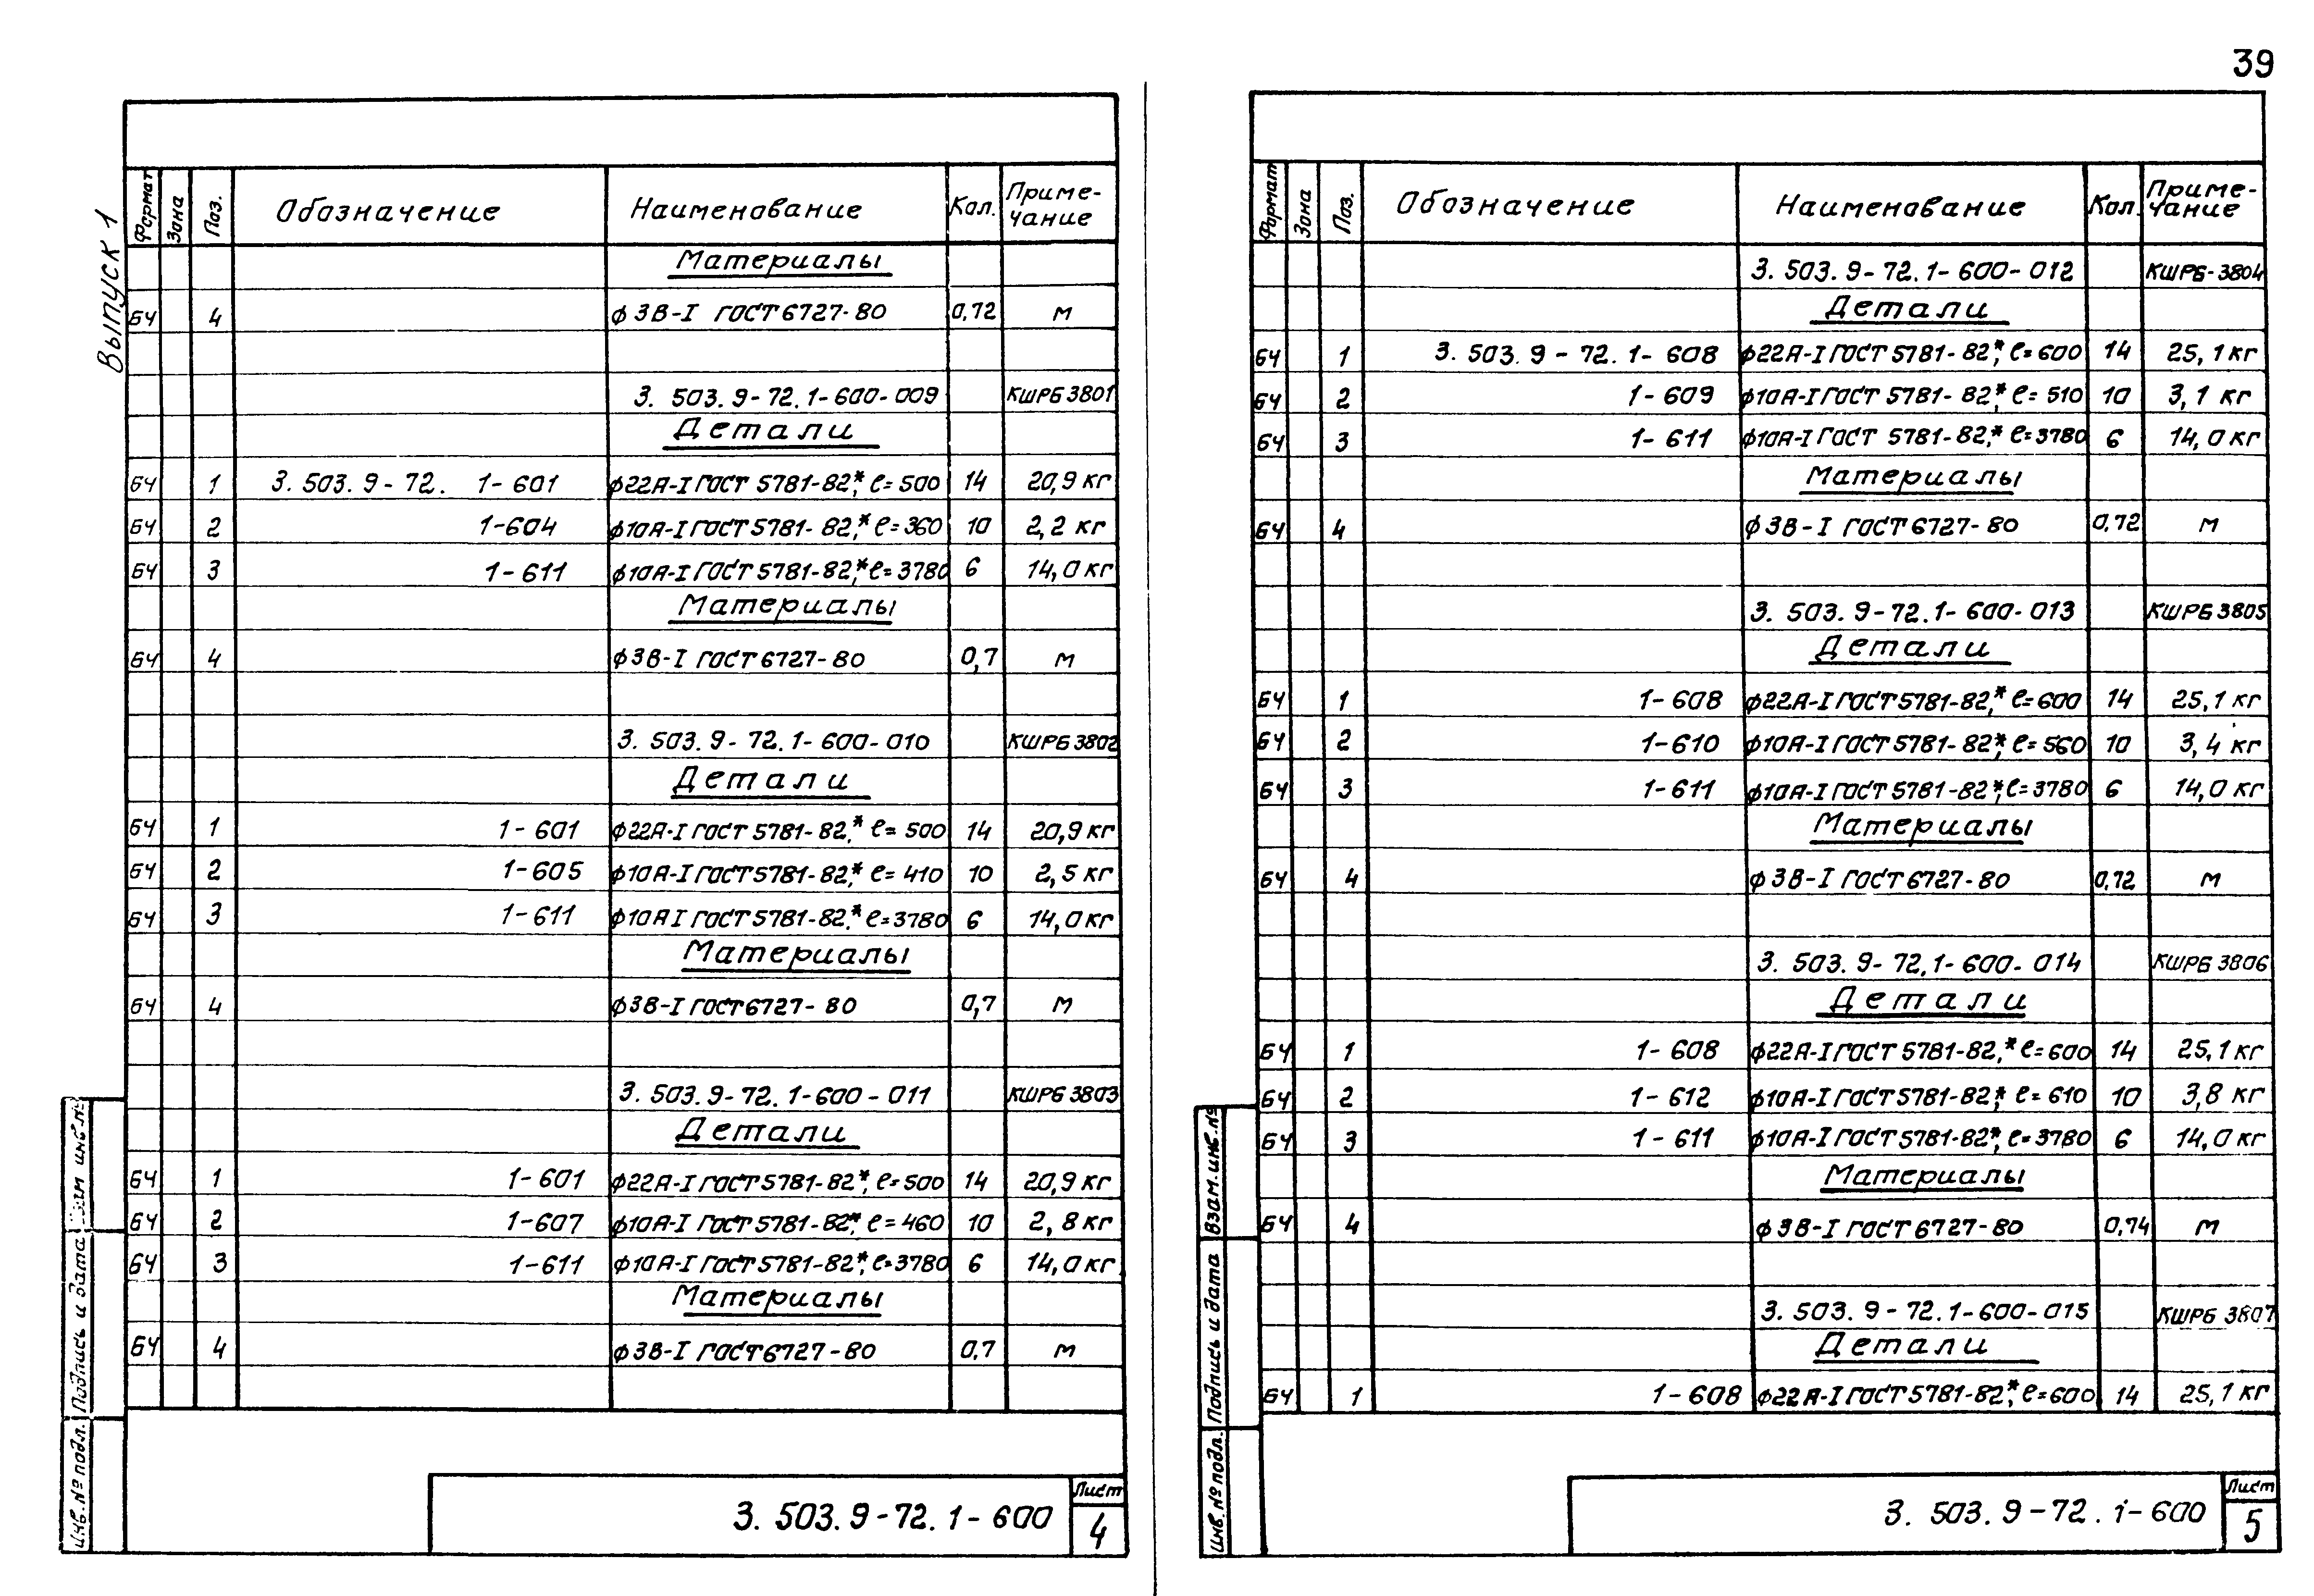 39
Выпуск 1
Формат Зона Поз. Обозначение Наименование Кол. Приме-
чание
Материалы
БЧ 4 ф3В-I ГОСТ 6727-80 0,72 м
3.503.9-72.1-600-009 КШРБ3801
Детали
БЧ 1 3.503.9-72. 1-601 ф22А-I ГОСТ 5781-82*, ℓ=500 14 20,9 кг
БЧ 2 1-604 ф10А-I ГОСТ 5781-82*, ℓ=360 10 2,2 кг
БЧ 3 1-611 ф10А-I ГОСТ 5781-82*, ℓ=3780 6 14,0 кг
Материалы
БЧ 4 ф3В-I ГОСТ 6727-80 0,7 м
3.503.9-72.1-600-010 КШРБ3802
Детали
БЧ 1 1-601 ф22А-I ГОСТ 5781-82*, ℓ=500 14 20,9 кг
БЧ 2 1-605 ф10А-I ГОСТ 5781-82*, ℓ=410 10 2,5 кг
БЧ 3 1-611 ф10А I ГОСТ 5781-82*, ℓ=3780 6 14,0 кг
Материалы
БЧ 4 ф3В-I ГОСТ 6727-80 0,7 м
3.503.9-72.1-600-011 КШРБ3803
Детали
БЧ 1 1-601 ф22А-I ГОСТ 5781-82*, ℓ=500 14 20,9 кг
БЧ 2 1-607 ф10А-I ГОСТ 5781-82*, ℓ=460 10 2,8 кг
БЧ 3 1-611 ф10А-I ГОСТ 5781-82*, ℓ=3780 6 14,0 кг
Материалы
БЧ 4 ф3В-I ГОСТ 6727-80 0,7 м
Инв.№ подл. Подпись и дата Взам инв.№
3.503.9-72.1-600
Лист
4
Формат Зона Поз. Обозначение Наименование Кол. Приме-
чание
3.503.9-72.1-600-012 КШРБ-3804
Детали
БЧ 1 3.503.9-72.1-608 ф22А-I ГОСТ 5781-82*, ℓ=600 14 25,1 кг
БЧ 2 1-609 ф10А-I ГОСТ 5781-82*, ℓ=510 10 3,1 кг
БЧ 3 1-611 ф10А-I ГОСТ 5781-82,* ℓ=3780 6 14,0 кг
Материалы
БЧ 4 ф3В-I ГОСТ 6727-80 0,72 м
3.503.9-72.1-600-013 КШРБ3805
Детали
БЧ 1 1-608 ф22А-I ГОСТ 5781-82,* ℓ=600 14 25,1 кг
БЧ 2 1-610 ф10А-I ГОСТ 5781-82*, ℓ=560 10 3,4 кг
БЧ 3 1-611 ф10А-I ГОСТ 5781-82*, ℓ=3780 6 14,0 кг
Материалы
БЧ 4 ф3В-I ГОСТ 6727-80 0,72 м
3.503.9-72.1-600-014 КШРБ3806
Детали
БЧ 1 1-608 ф22А-I ГОСТ 5781-82,* ℓ=600 14 25,1 кг
БЧ 2 1-612 ф10А-I ГОСТ 5781-82*, ℓ=610 10 3,8 кг
БЧ 3 1-611 ф10А-I ГОСТ 5781-82*, ℓ=3780 6 14,0 кг
Материалы
БЧ 4 ф3В-I ГОСТ 6727-80 0,74 м
3.503.9-72.1-600-015 КШРБ 3807
Детали
БЧ 1 1-608 ф22А-I ГОСТ 5781-82*, ℓ=600 14 25,1 кг
Инв.№ подл. Подпись и дата Взам.инв.№
3.503.9-72.1-600
Лист
5